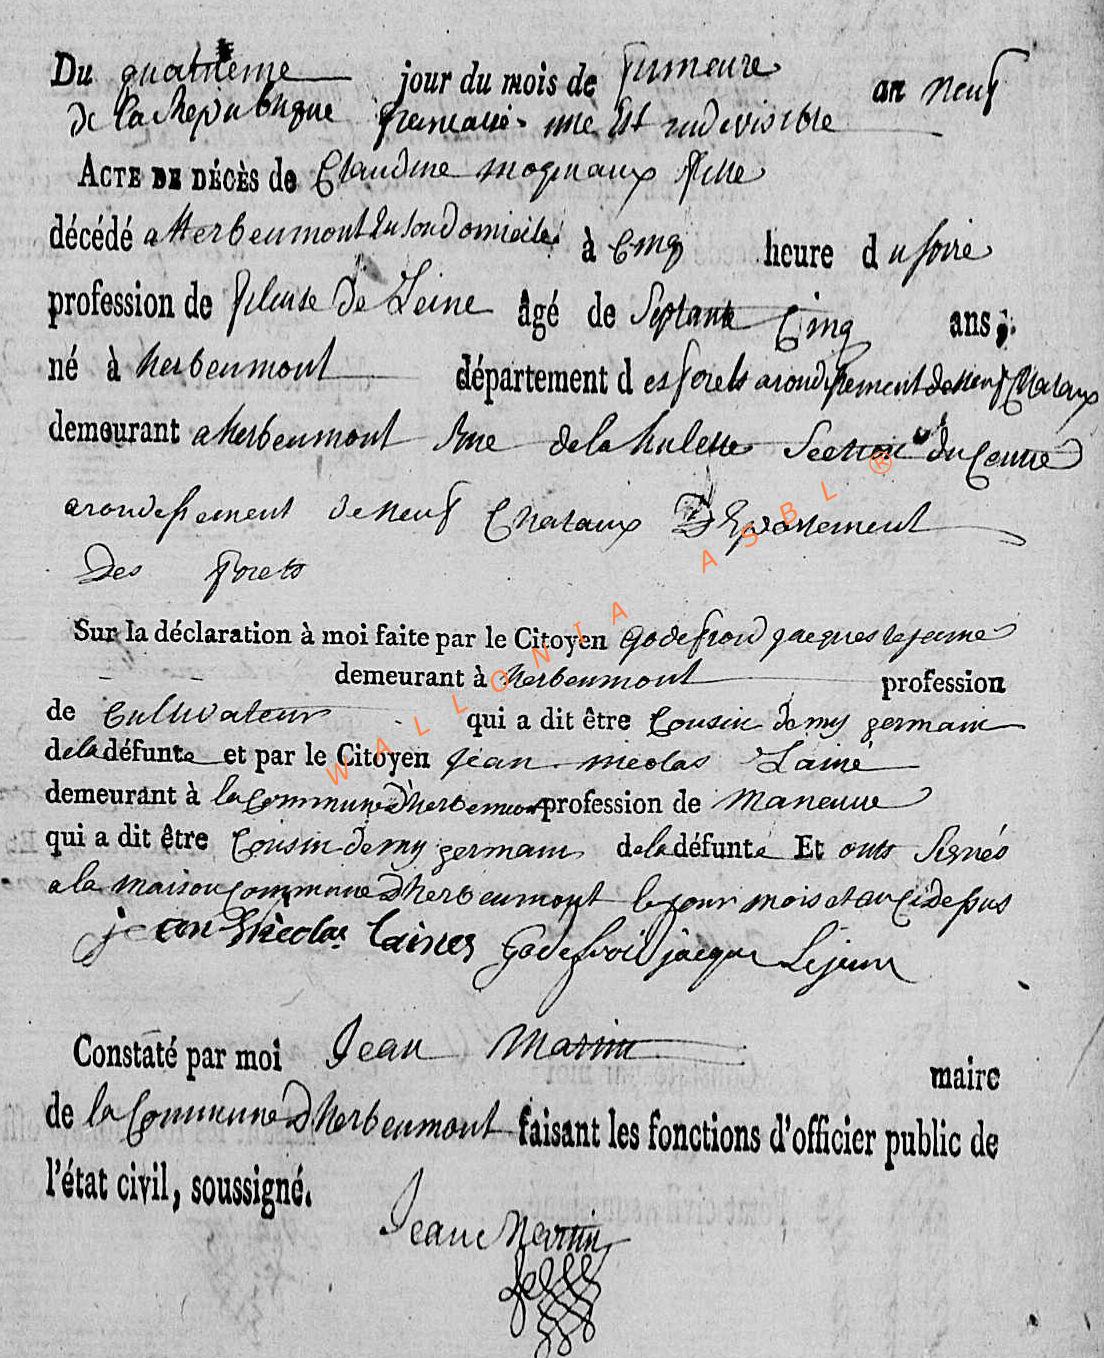 Du quatrieme jour du mois de frimeure an neuf
de la Republique francaise une Et indivisible
ACTE DE DÉCÈS de Claudine moginaux fille
décédé a Herbeumont En son domicile à Cinq heure d u soire
profession de fileuse de Leine âgé de Septante Cinq ans,
né à herbeumont département d es forets arondissement de neuf Chataux
demeurant a herbeumont Rue de la hulette Section du Centre
arondissement de neuf Chataux Departement
Des forets
Sur la déclaration à moi faite par le Citoyen Godefroid jacques lejeune
demeurant à herbeumont profession
de Cultivateur qui a dit être Cousin demy germain
de la défunte et par le Citoyen jean nicolas Lainé
demeurant à la Commune d'herbeumont profession de Maneuve
qui a dit être Cousin demy germain de la défunte Et onts signés
a la maison Commune d'herbeumont le jour mois et an Cidessus
jean Nicolas Laines Godefroid jacque Lejeune
Constaté par moi Jean Martin
maire
de la Commune d'herbeumont faisant les fonctions d'officier public de
l'état civil, soussigné.
Jean Martin
WALLONIA ASBL ®